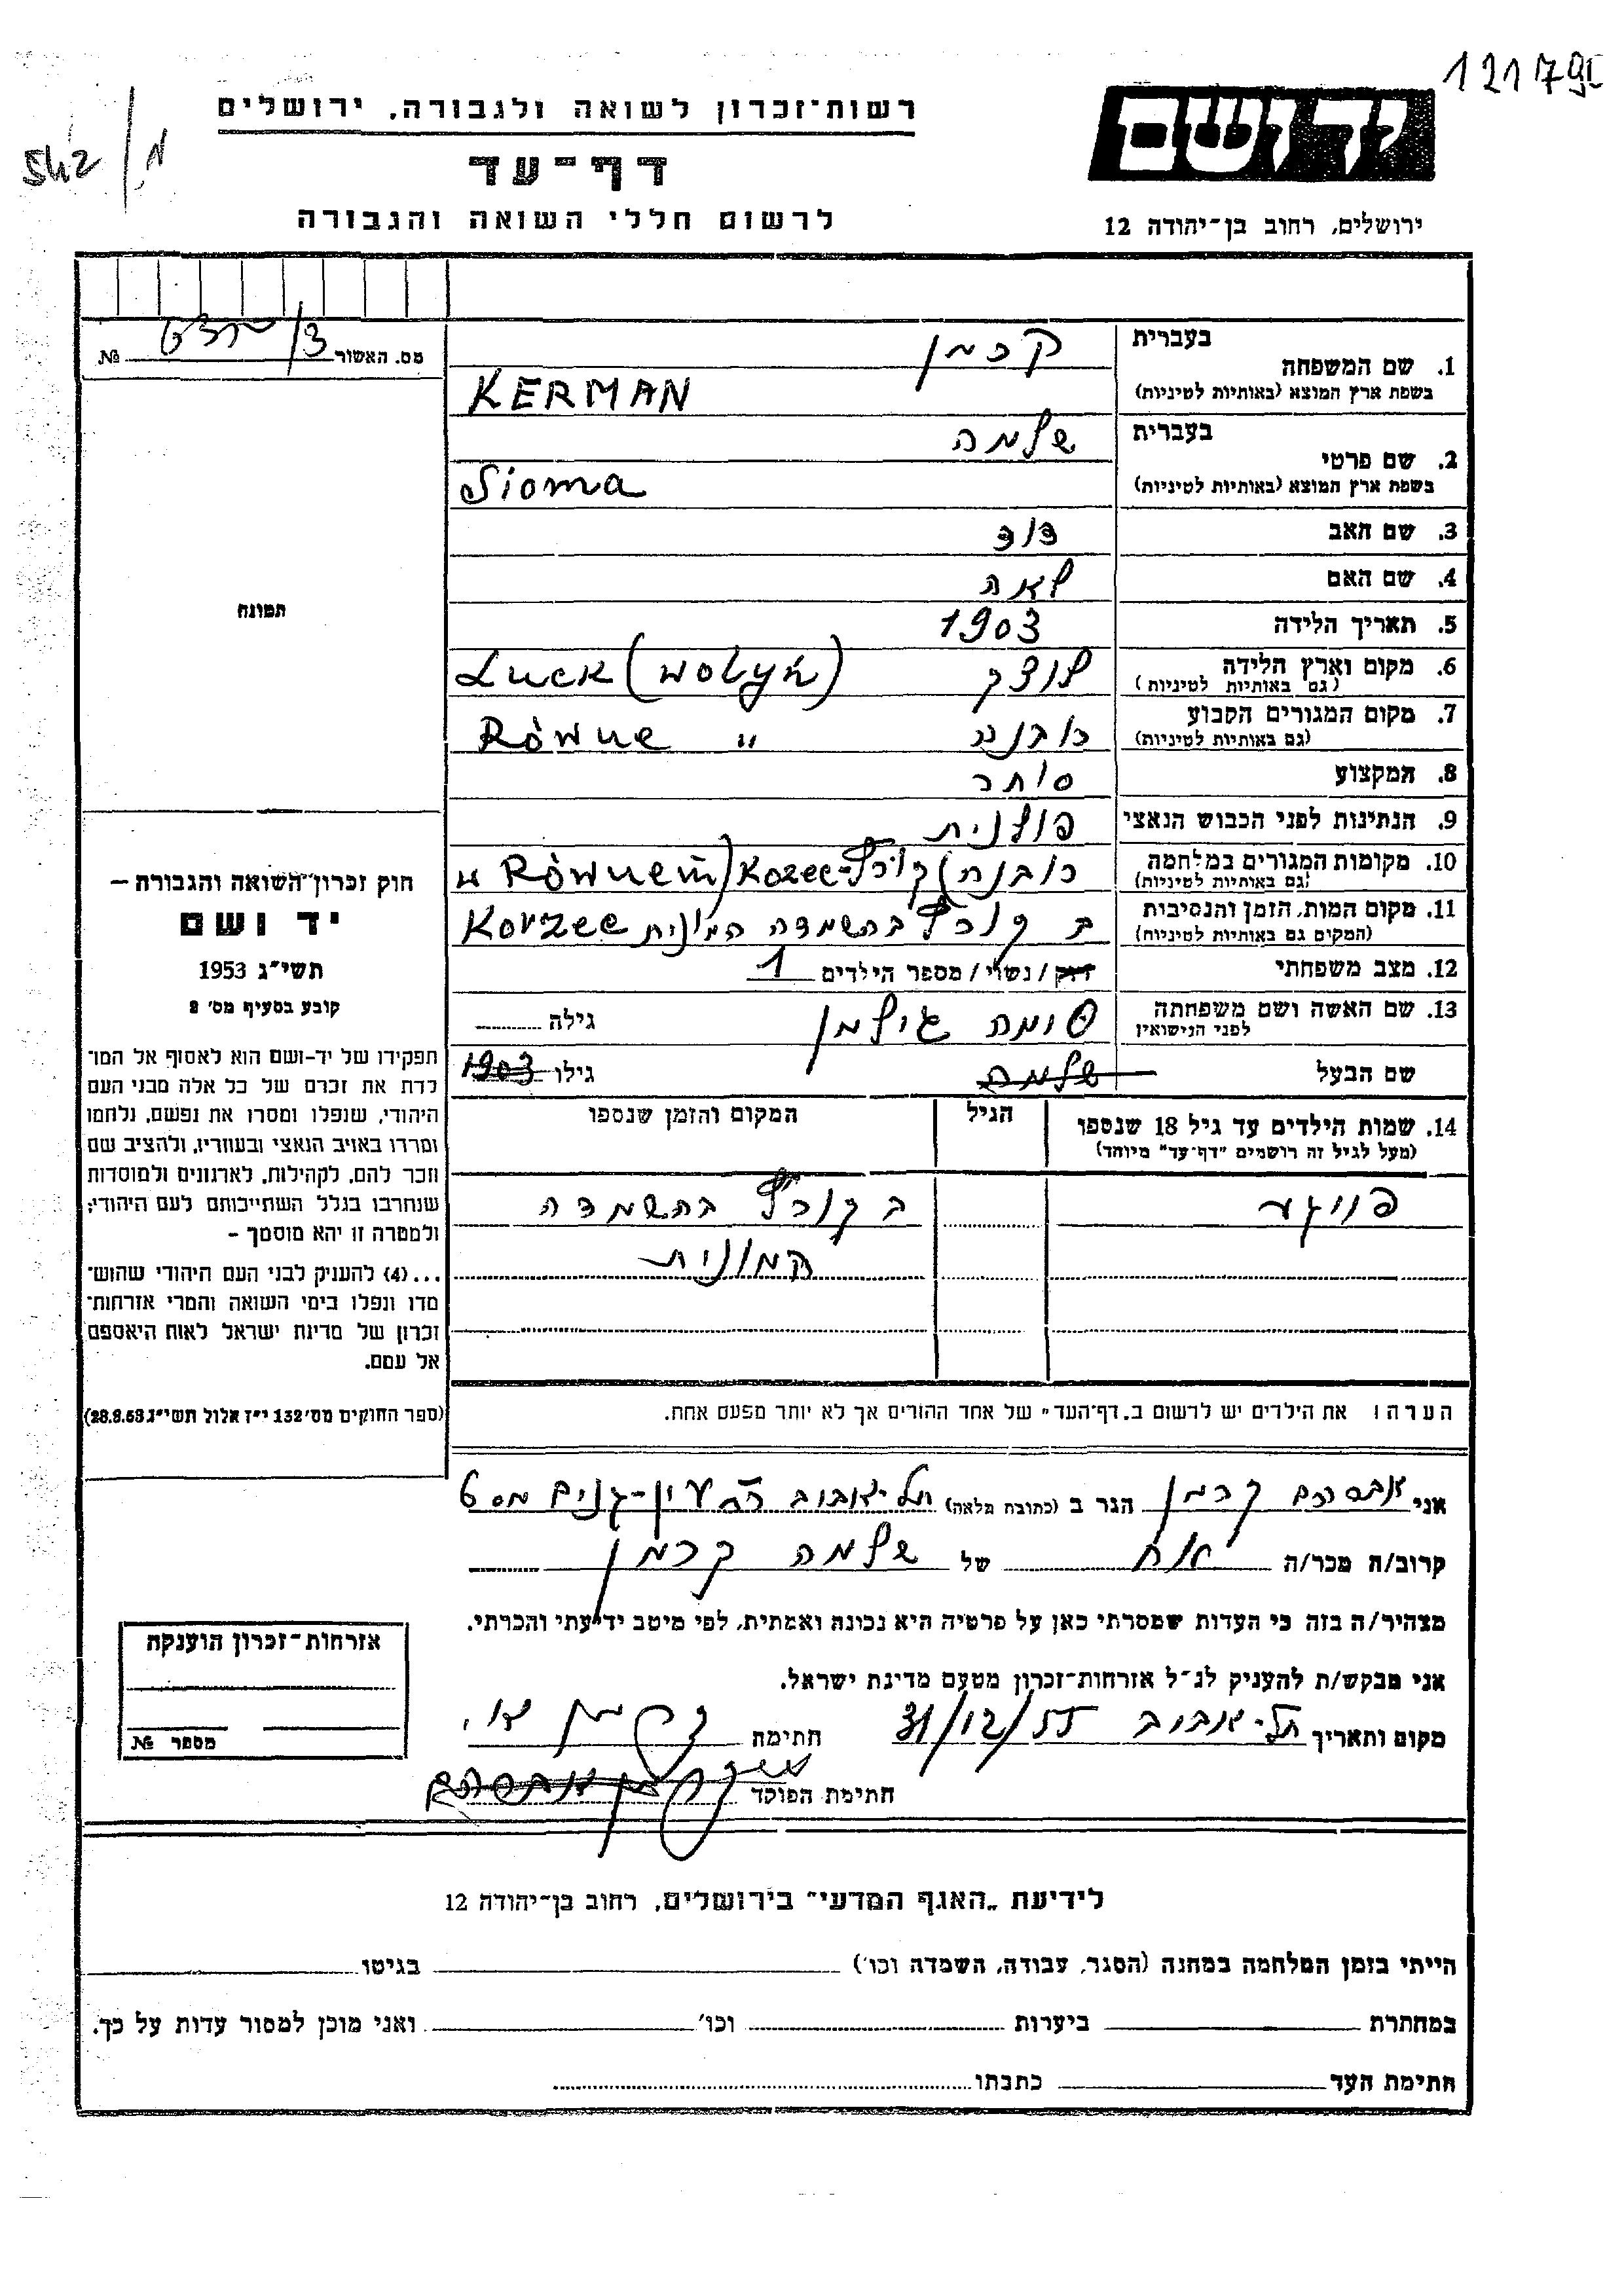 121791
רשות־זכרון לשואה ולגבורה, ירושלים
יד ושם
דף־עד
542/
לרשום חללי השואה והגבורה
ירושלים, רחוב בן־יהודה 12
מס. האשור №
בעברית
קרמן
1. שם המשפחה
בשפת ארץ המוצא (באותיות לטיניות)
KERMAN
בעברית
שלמה
2. שם פרטי
בשפת ארץ המוצא (באותיות לטיניות)
Sioma
3. שם האב
דוד
4. שם האם
לאה
5. תאריך הלידה
1903
6. מקום וארץ הלידה
(גם באותיות לטיניות)
לוצק Łuck (Wołyń)
7. מקום המגורים הקבוע
(גם באותיות לטיניות)
רובנה Równe "
8. המקצוע
סוחר
9. הנתינות לפני הכבוש הנאצי
פולנית
10. מקומות המגורים במלחמה
(גם באותיות לטיניות)
רובנה
11. מקום המות, הזמן והנסיבות
(המקום גם באותיות לטיניות)
בהשמדה המונית Korzec
12. מצב משפחתי
רוק / נשוי / מספר הילדים 1
13. שם האשה ושם משפחתה
לפני הנישואין
גילה
שם הבעל
שלמה
גילו 1903
14. שמות הילדים עד גיל 18 שנספו
(מעל לגיל זה רושמים "דף־עד" מיוחד)
הגיל
המקום והזמן שנספו
בהשמדה
המונית
הערה: את הילדים יש לרשום ב„דף־העד" של אחד ההורים אך לא יותר מפעם אחת.
אני אברהם קרמן הגר ב (כתובת מלאה) תל־אביב
קרוב/ה מכר/ה אח של שלמה קרמן
מצהיר/ה בזה כי העדות שמסרתי כאן על פרטיה היא נכונה ואמתית, לפי מיטב ידיעתי והכרתי.
אני מבקש/ת להעניק לנ"ל אזרחות־זכרון מטעם מדינת ישראל.
מקום ותאריך תל־אביב 31/12/55 חתימת
חתימת הפוקד
תמונה
חוק זכרון־השואה והגבורה –
יד ושם
תשי"ג 1953
קובע בסעיף מס' 2
תפקידו של יד-ושם הוא לאסוף אל המו־
לדת את זכרם של כל אלה מבני העם
היהודי, שנפלו ומסרו את נפשם, נלחמו
ומרדו באויב הנאצי ובעוזריו, ולהציב שם
וזכר להם, לקהילות, לארגונים ולמוסדות
שנחרבו בגלל השתייכותם לעם היהודי;
ולמטרה זו יהא מוסמך –
...(4) להעניק לבני העם היהודי שהוש־
מדו ונפלו בימי השואה והמרי אזרחות־
זכרון של מדינת ישראל לאות היאספם
אל עמם.
(ספר החוקים מס' 132 י"ז אלול תשי"ג 28.8.53)
אזרחות־זכרון הוענקה
מספר №
לידיעת „האגף המדעי" בירושלים, רחוב בן־יהודה 12
הייתי בזמן המלחמה במחנה (הסגר, עבודה, השמדה וכו') בגיטו
במחתרת ביערות וכו' ואני מוכן למסור עדות על כך.
חתימת העד כתבתו